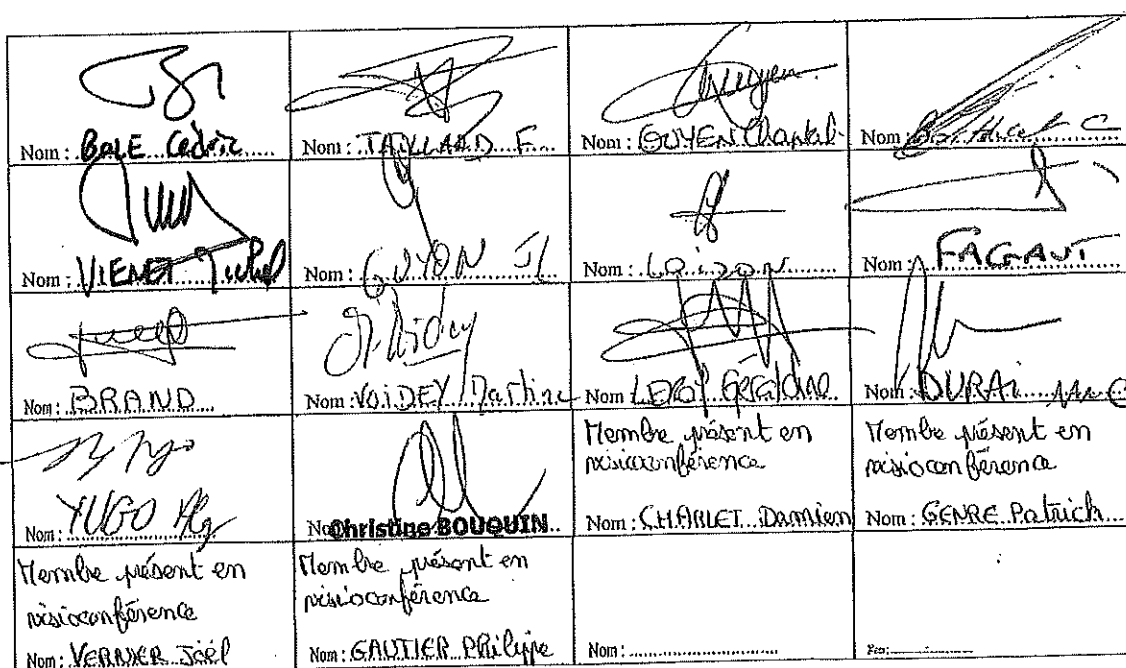 Nom : BOLE Cédric
Nom : TAILLARD F.
Nom : GUYEN Chantal
Nom : C
Nom : VIENET Michel
Nom : GUYON JL
Nom : Loizon
Nom : FAGAUT
Nom : BRAND
Nom : VOIDEY Martine
Nom : LEROY Géraldine
Nom : DURAI
Nom : YUGO
Nom Christine BOUQUIN
Membre présent en
visioconférence
Nom : CHARLET Damien
Membre présent en
visioconférence
Nom : GENRE Patrick
Membre présent en
visioconférence
Nom : VERNIER Joël
Membre présent en
visioconférence
Nom : GAUTIER Philippe
Nom :